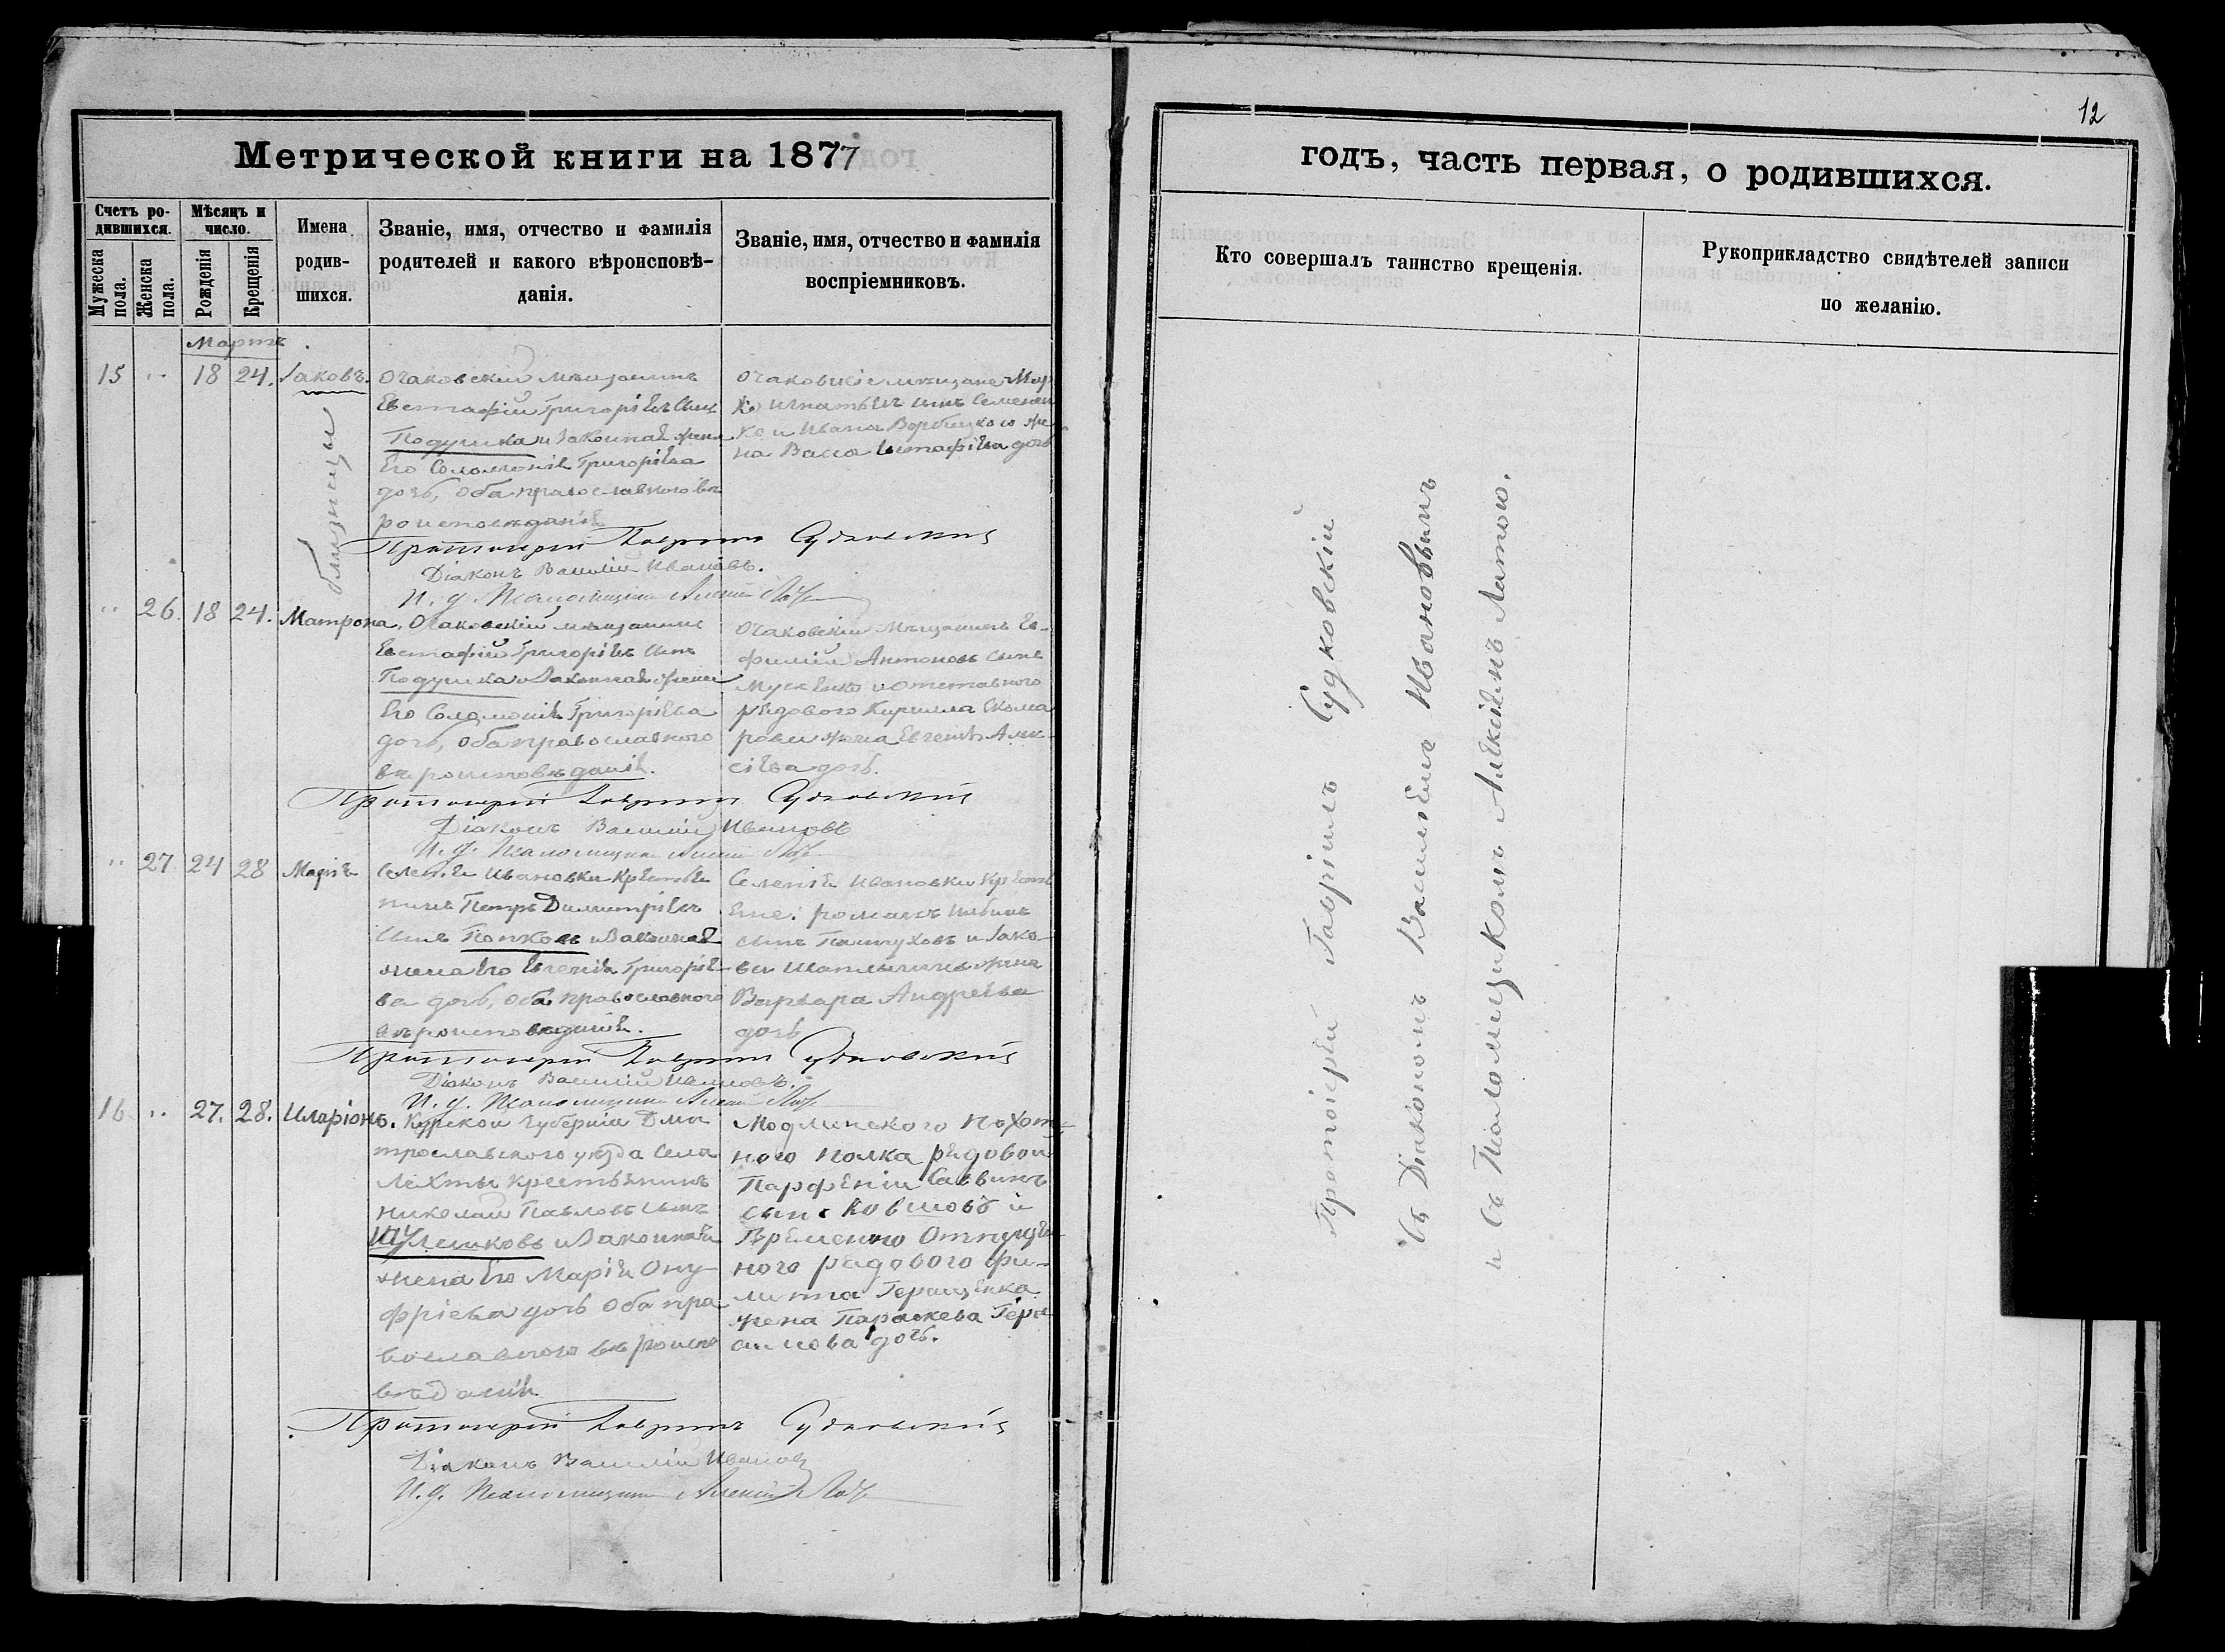 12
Метрической книги на 1877
годъ, часть первая, о родившихся.
Счетъ родившихся.
Мужеска пола.
Женска пола.
Мѣсяцъ и число.
Рожденія
Крещенія
Имена родившихся.
Званіе, имя, отчество и фамилія
родителей и какого вѣроисповѣ-
данія.
Званіе, имя, отчество и фамилія
воспріемниковъ.
Кто совершалъ таинство крещенія.
Рукоприкладство свидѣтелей записи
по желанію.
Мартъ
15 " 18 24. Іаковъ.
близнецы
Очаковскій мѣщанинъ
Евстафій Григоріевъ сынъ
Подушка и законная жена
Его Соломонія Григоріева
дочь, оба православнаго вѣ
роисповѣданія
Очаковскіе мѣщане Мар
ко Игнатьевъ сынъ Семенен
ко и Ивана Вербицкого же
на Васса Евстафіева дочь
Протоіерей Гавріилъ Судковскій
Діаконъ Василій Ивановъ.
И. д. Псаломщика Алексій
" 26. 18 24. Матрона.
Очаковскій мѣщанинъ
Евстафій Григоріевъ сынъ
Подушка и законная жена
Его Соломонія Григоріева
дочь, оба православного
вѣроисповѣданія.
Очаковскій мѣщанинъ Ев-
фимій Антоновъ сынъ
и отставного
рядового Кирилла
жена Евгенія Алек
сіева дочь.
Протоіерей Гавріилъ Судковскій
Діаконъ Василій Ивановъ
И. д. Псаломщика Алексій
" 27 24 28 Марія
Селенія Ивановки крестья
нинъ Петръ Димитріевъ
сынъ Попковъ и законная
жена Его Евгенія Григоріе-
ва дочь, оба православного
вѣроисповѣданія.
Селенія Ивановки крестья
не: Романъ
сынъ Пастуховъ и Іако-
ва жена
Варвара Андреева
дочь
Протоіерей Гавріилъ Судковскій
Діаконъ Василій Ивановъ.
И. д. Псаломщика Алексій
16 " 27. 28. Иларіонъ.
Курской губерніи Дми
трославского уѣзда села
Лехты крестьянинъ
Николай Павловъ сынъ
Шулешковъ и законная
жена Его Марія Ону
фріева дочь оба пра
вославного вѣроиспо
вѣданія
Модлинского пѣхот-
ного полка рядовой
Парфеній Саввинъ
сынъ Ковшовъ и
Временно Отпущен
ного рядового Фи-
липпа Геращенка
жена Параскева Гера
симова дочь.
Протоіерей Гавріилъ Судковскій
Діаконъ Василій Ивановъ
И. д. Псаломщика Алексій
Протоіерей Гавріилъ Судковскій
Съ Діакономъ Василіемъ Ивановымъ
и Съ Псаломщикомъ Алексіемъ Лятою.